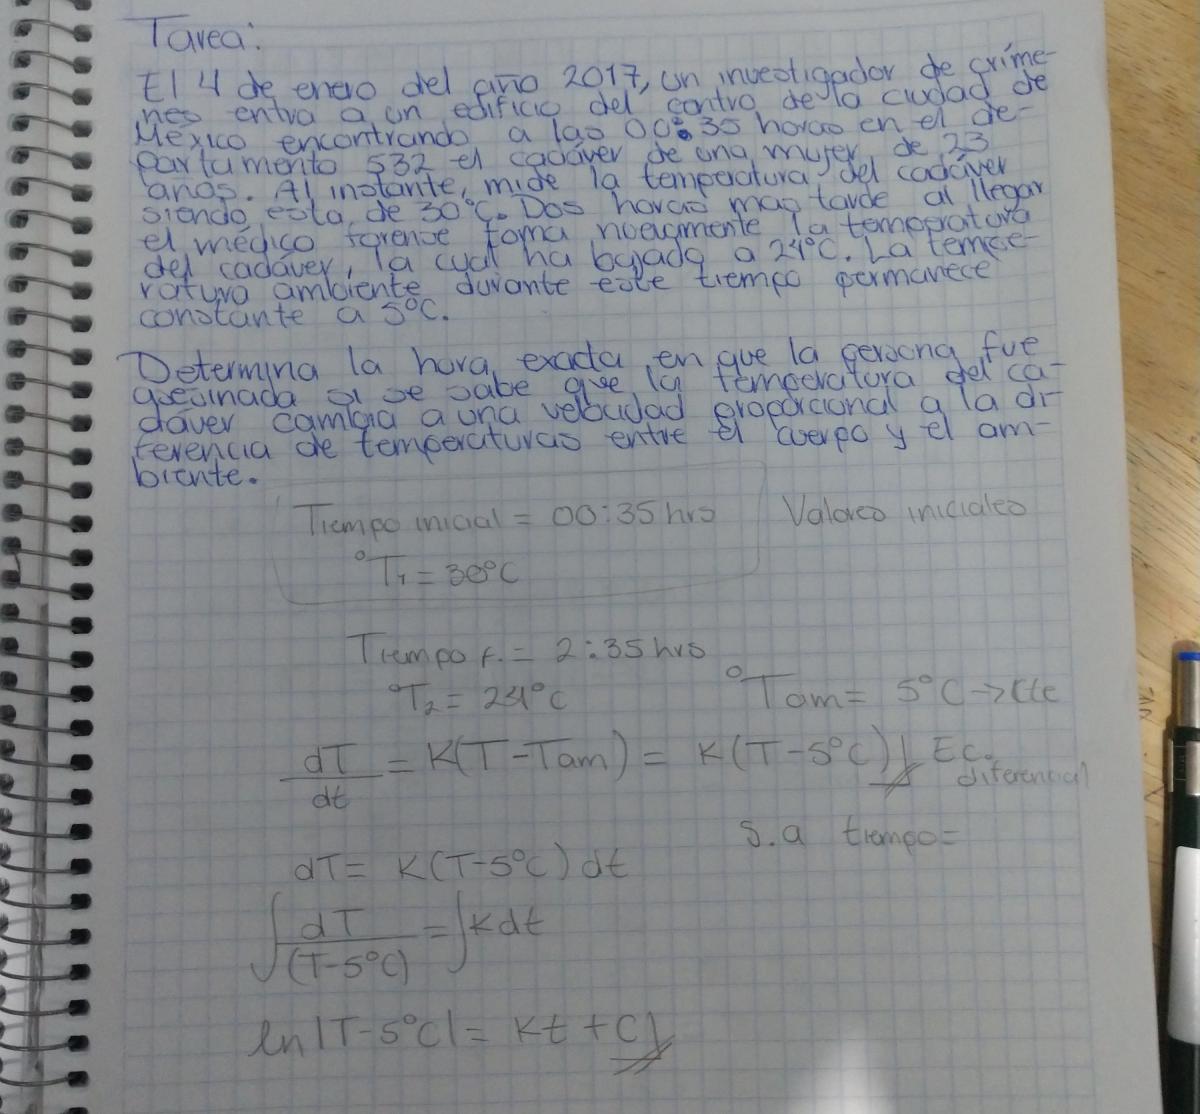 Tarea:
El 4 de enero del año 2017, un investigador de críme-
nes entra a un edificio del centro de la ciudad de
México encontrando a las 00:35 horas en el de-
partamento 532 el cadáver de una mujer de 23
años. Al instante, mide la temperatura del cadáver
siendo esta de 30°C. Dos horas mas tarde al llegar
el médico forense toma nuevamente la temperatura
del cadáver, la cual ha bajado a 24°C. La tempe-
ratura ambiente durante este tiempo permanece
constante a 5°C.
Determina la hora exacta en que la persona fue
asesinada si se sabe que la temperatura del ca-
dáver cambia a una velocidad proporcional a la di-
ferencia de temperaturas entre el cuerpo y el am-
biente.
Tiempo inicial = 00:35 hrs Valores iniciales
°T1 = 30°C
Tiempo f. = 2:35 hrs
°T2 = 24°C °Tam = 5°C → Cte
dT/dt = K(T-Tam) = K(T-5°C) Ec. diferencial
S.a tiempo=
dT = K(T-5°C) dt
∫ dT/(T-5°C) = ∫ K dt
ln|T-5°C| = Kt + C